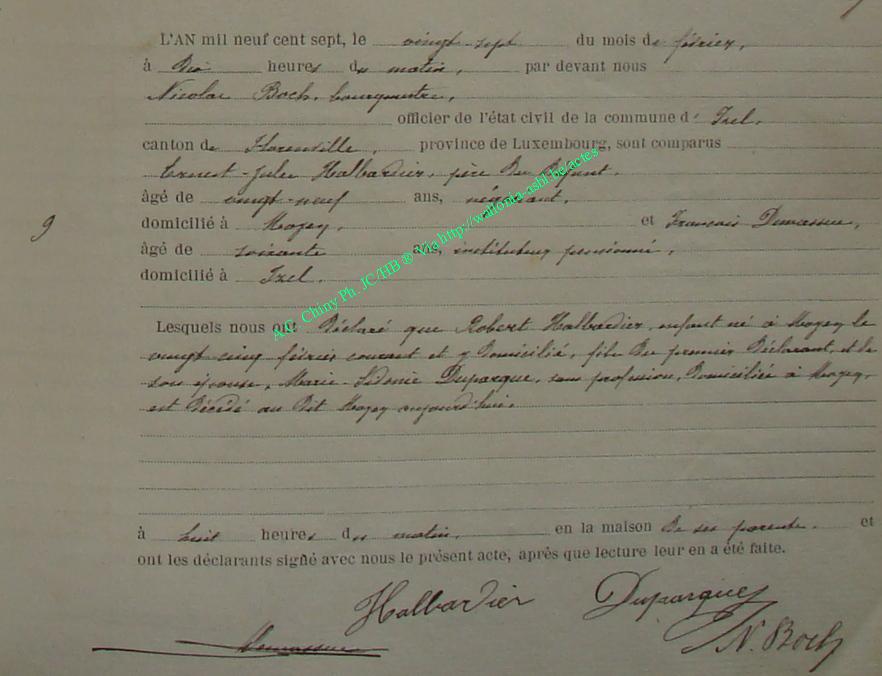 L'AN mil neuf cent sept, le vingt-sept du mois de février,
à dix heures du matin, par devant nous
Nicolas Boch, bourgmestre,
officier de l'état civil de la commune d' Izel,
canton de Florenville, province de Luxembourg, sont comparus
Ernest-Jules Halbardier, père du défunt,
âgé de vingt-neuf ans, négociant,
domicilié à Moyen, et François
âgé de soixante ans, instituteur pensionné,
domicilié à Izel.
9
A.C. Chiny Ph. JC/HB ® Via http://wallonia-asbl.be/actes
Lesquels nous ont déclaré que Robert Halbardier, enfant né à Moyen le
vingt cinq février courant et y domicilié, fils du premier déclarant, et de
son épouse, Marie- Duparque, sans profession, domiciliée à Moyen,
est décédé au dit Moyen aujourd'hui,
à huit heures du matin, en la maison de ses parents. et
ont les déclarants signé avec nous le présent acte, après que lecture leur en a été faite.
Halbardier Duparque
N. Boch